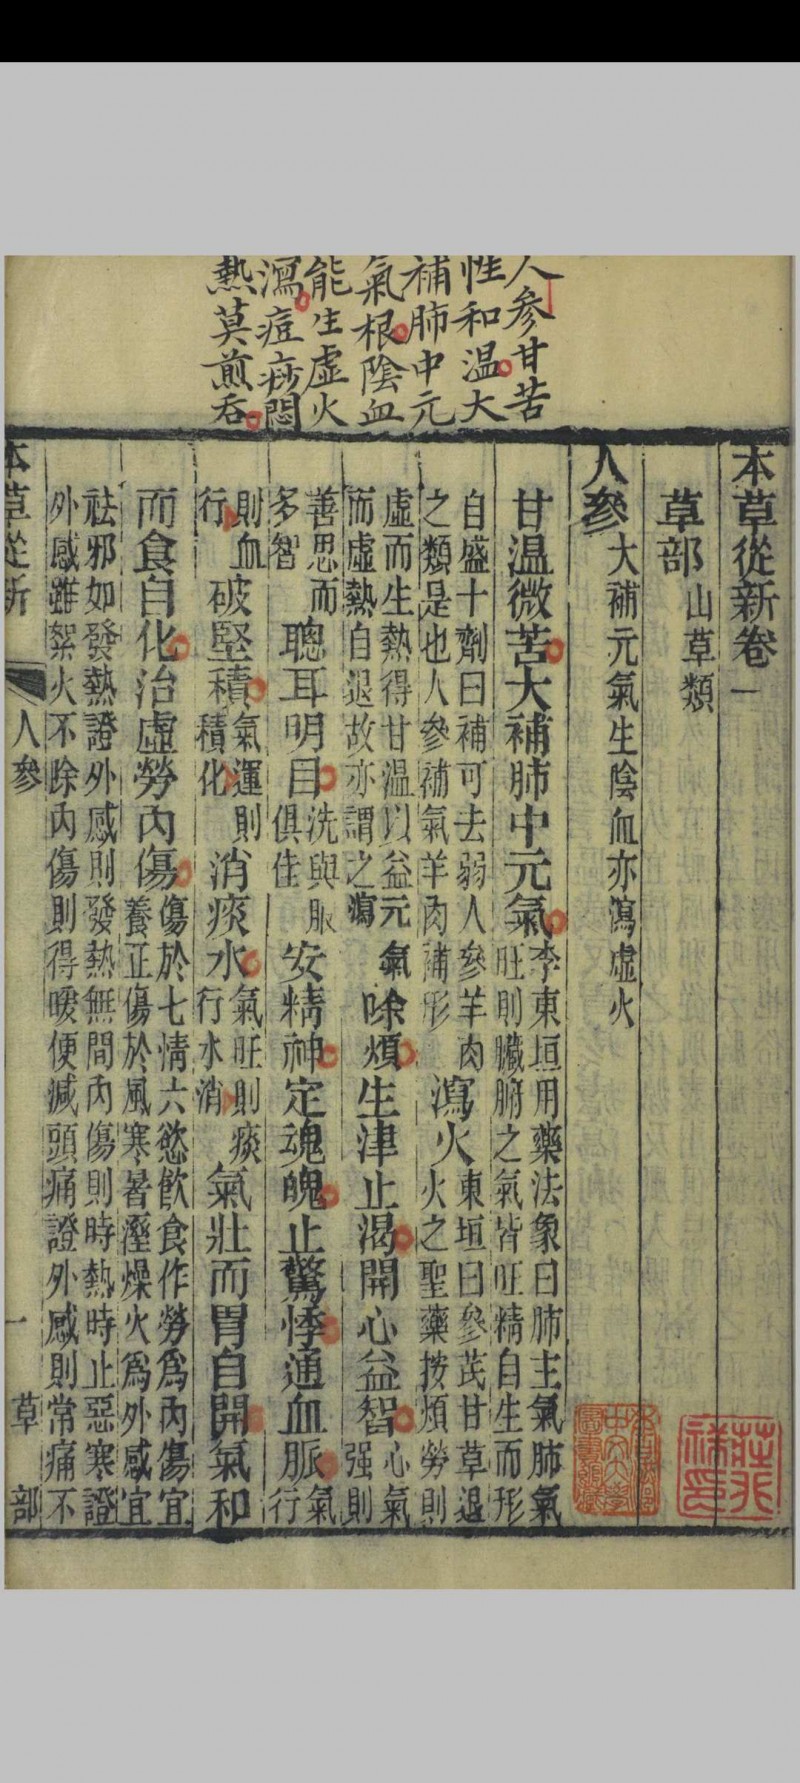 人參甘苦
性和温大
補肺中元
氣根陰血
能生虛火
瀉痘疹悶
熱莫煎吞
本草從新卷一
草部 山草類
人參 大補元氣生陰血亦瀉虛火
甘温微苦大補肺中元氣 李東垣用藥法象曰肺主氣肺氣旺則臟腑之氣皆旺精自生而形
自盛十劑曰補可去弱人參羊肉之類是也人參補氣羊肉補形 瀉火 東垣曰參芪甘草退火之聖藥按煩勞則
虛而生熱得甘温以益元氣而虛熱自退故亦謂之瀉 除煩生津止渴開心益智 心氣强則
善思而多智 聰耳明目 洗與服俱佳 安精神定魂魄止驚悸通血脈 氣行
則血行 破堅積 氣運則積化 消痰水 氣旺則痰行水消 氣壯而胃自開氣和
而食自化治虛勞内傷 傷於七情六慾飲食作勞爲内傷宜養正傷於風寒暑溼燥火爲外感宜
祛邪如發熱證外感則發熱無間内傷則時熱時止惡寒證
外感雖絮火不除内傷則得暖便減頭痛證外感則常痛不
本草從新 人參 一 草部
莊兆祥印